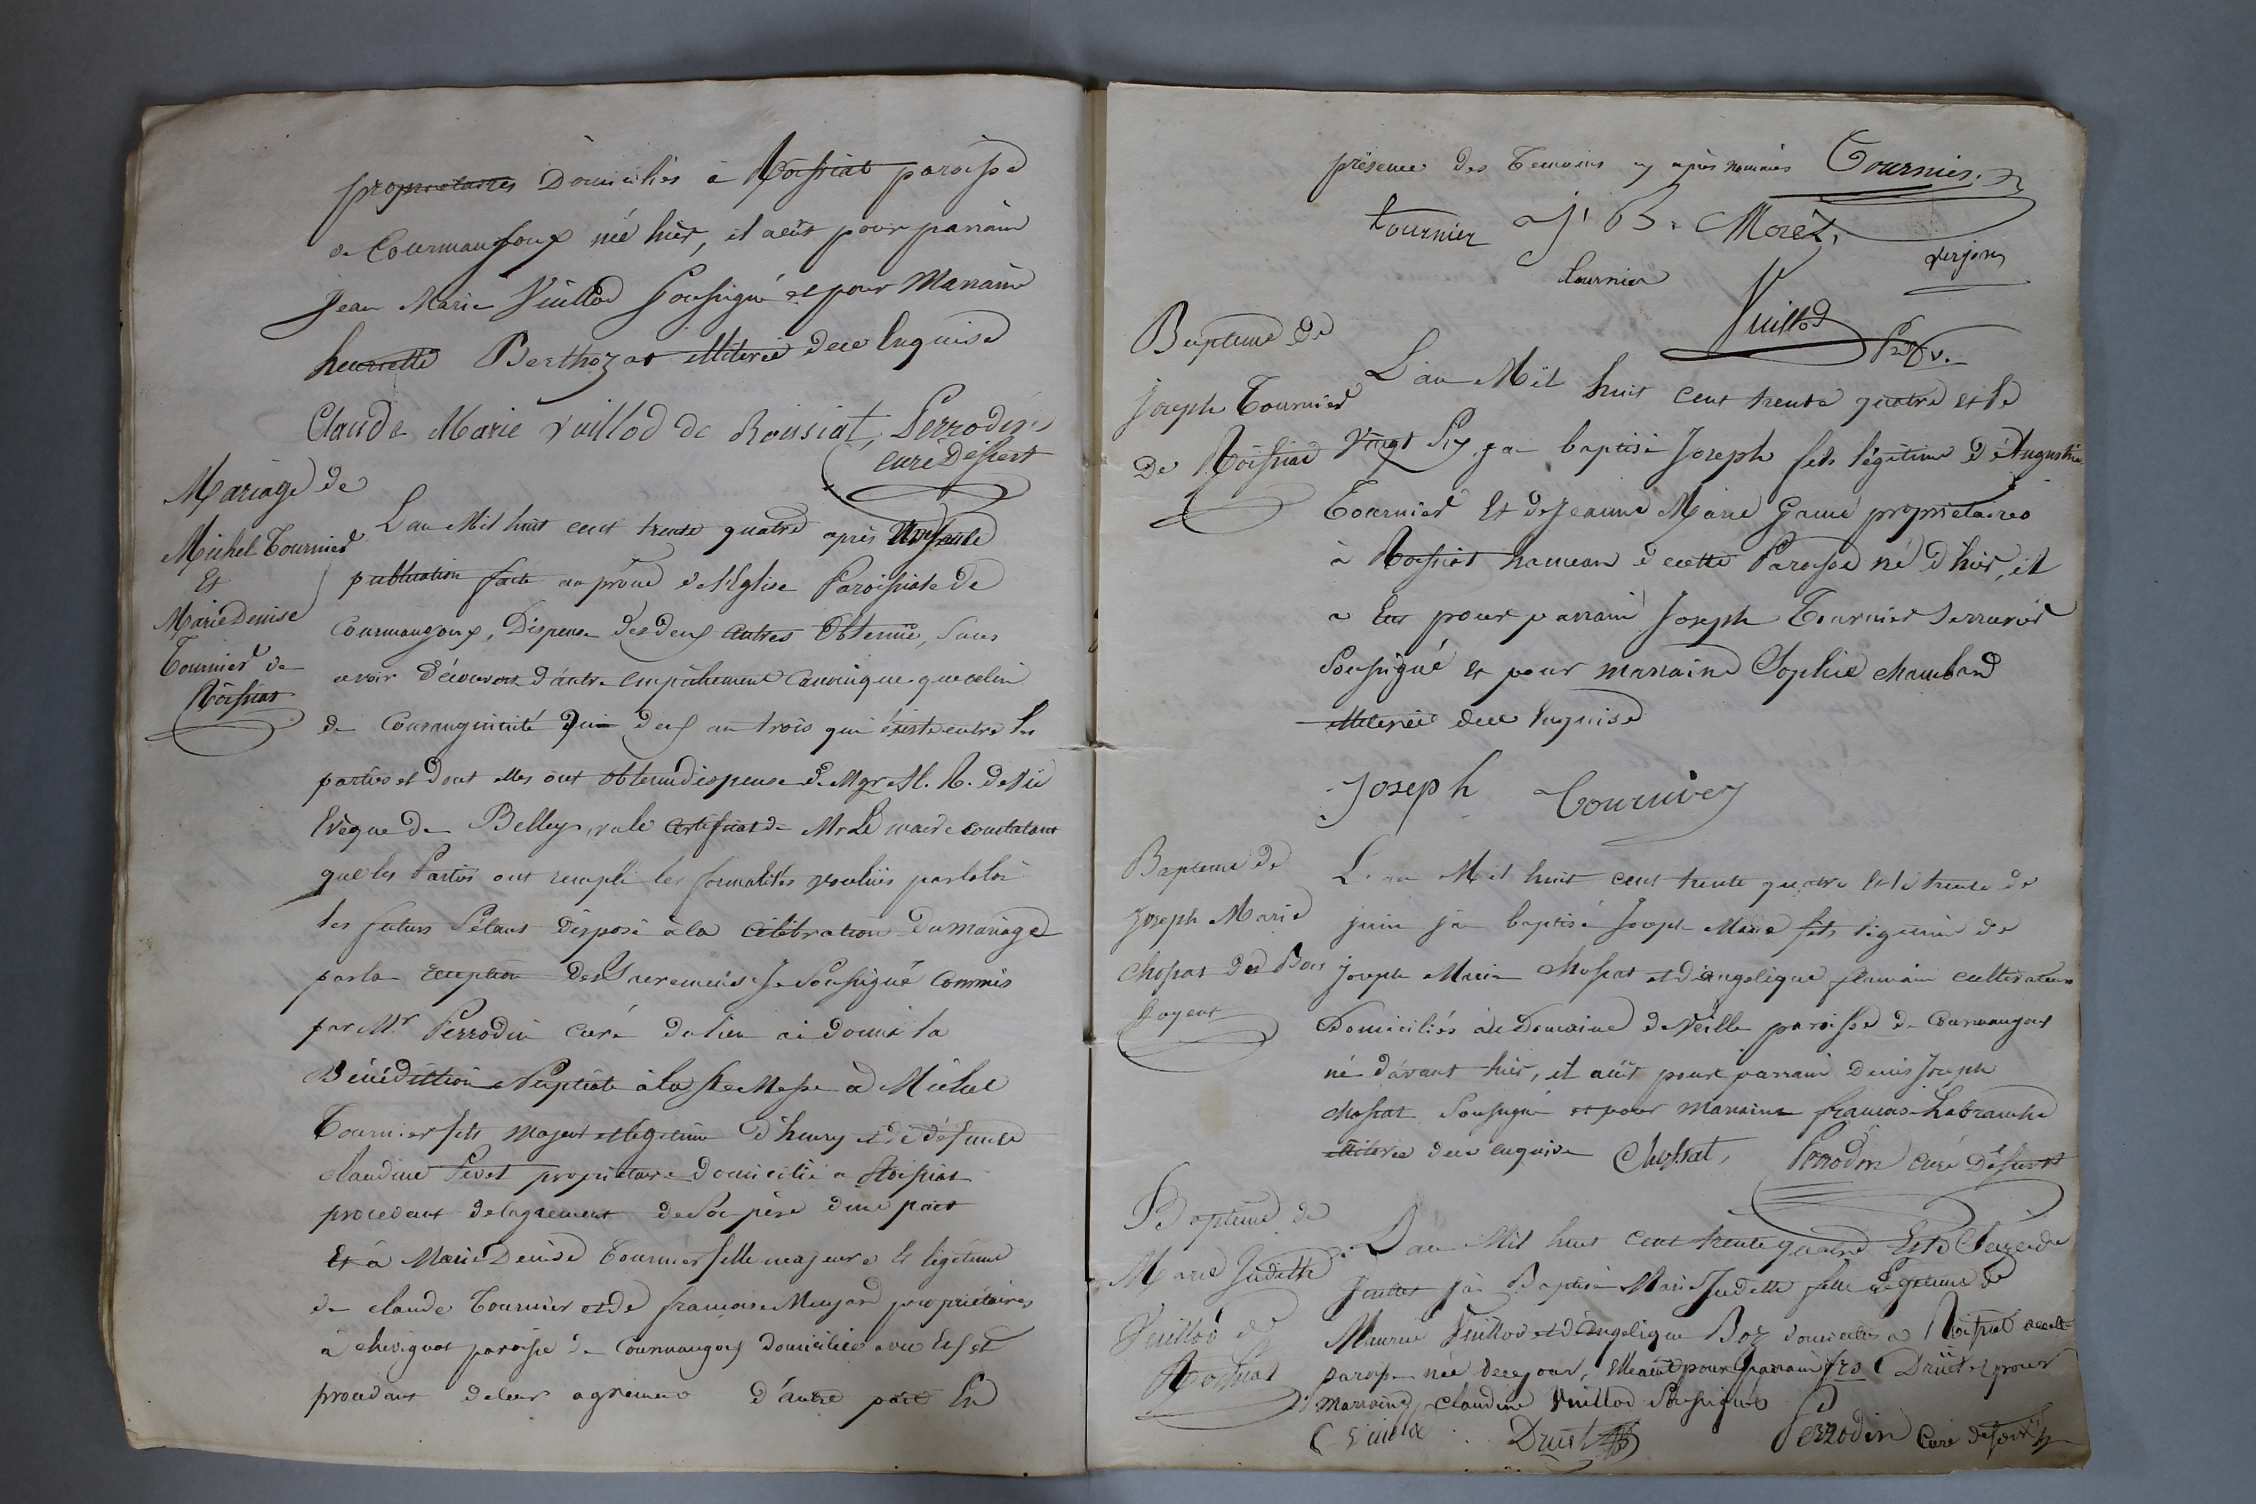 propriétaires Domiciliés à Roissiat paroisse
de Courmangoux né hier, il a eût pour parrain
Jean Marie Vuillod Soussigné et pour Marraine
henriette Berthozat illiterée de ce Enquise
Claude Marie vuillod de Roissiat Perrodin
curé Desservt
Mariage de
Michel Tournier
Et
Marie Denise
Tournier de
Roissiat
L'an Mil huit cent trente quatre après une seule
publication faite au prône de l'Eglise Paroissiale de
Courmangoux, Dispense des deux autres Obtenue, Sans
avoir découvert d'autre empêchement Canonique que celui
de Consanguinité du deux au trois qui éxiste entre les
parties et dont elles ont obtenu dispense de Mgr A. R. devie
Evêque de Belley, vu le certificat de Mr Le maire constatant
que les Parties ont rempli les formalités voulües par la loi
les futurs S'étant disposé à la célébration du mariage
par la reception des Sacremens Je Soussigné Commis
par Mr Perrodin curé du lieu ai donné la
Bénédiction Nuptiale à la Ste Messe à Michel
Tournier fils majeur et légitime d'henry et de défunte
claudine Pevet propriétaire domicilié a Roissiat
procedant de lagrement de Son père d'une part
Et à Marie Denise Tournier fille majeure Et légitime
de claude Tournier et de francoise Meujard propriétaires
à chevignat paroisse de Courmangoux domiciliée avec Eux et
procédant de leur agrément d'autre part En
présence des Temoins cy après nommés Tournier
tournier J. B. Morel
tournier verjon
Vuillod
Ptre v.
Bapteme de
Joseph Tournier
De Roissiat
L'an Mil huit cent trente quatre et le
vingt Six j'ai baptisé Joseph fils légitime d'Augustin
Tournier Et de Jeanne Marie Game propriétaires
à Roissiat hameau de cette Paroisse né d'hier, il
a Eu pour parrain Joseph Tournier Serrurier
Soussigné et pour marraine Sophie chamband
illiterée de ce Enquise
Joseph Tournier
Bapteme de
Joseph Marie
chossat des Bois
Joyeux
L'an Mil huit cent trente quatre Et le trente de
juin j'ai baptisé Joseph Marie fils légitime de
Joseph Marie chossat et d'angelique flamain cultivateurs
Domiciliés au Domaine de veille paroisse de Courmangoux
né d'avant hier, il a eût pour parrain Denis Joseph
chossat Soussigné et pour marraine francoise Labranche
illiterée de ce enquise Chossat, Perrodin curé Desservt
Bapteme de
Marie Judette
Vuillod de
Roissiat
L'an Mil huit cent trente quatre Et le Seize de
Juillet j'ai Baptisé Marie Judette fille Légitime de
Maurice Vuillod et d'Angelique Boz domiciliés à Roissiat de cette
paroisse née de ce jour, elle a eût pour parrain fcs Druet et pour
marraine claudine Vuillod Soussignés
C Vuillod Druet Perrodin Curé desservt